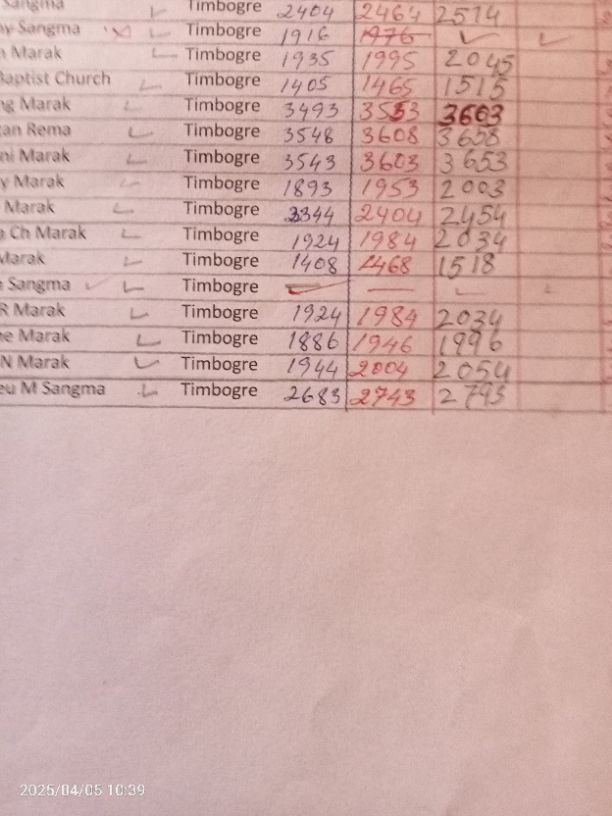 Sangma Timbogre 2404 2464 2514
y Sangma Timbogre 1916 1976
Marak Timbogre 1935 1995 2045
Baptist Church Timbogre 1405 1465 1515
ng Marak Timbogre 3493 3553 3603
an Rema Timbogre 3548 3608 3658
ni Marak Timbogre 3543 3603 3653
y Marak Timbogre 1893 1953 2003
Marak Timbogre 2344 2404 2454
a Ch Marak Timbogre 1924 1984 2034
Marak Timbogre 1408 1468 1518
Sangma Timbogre
R Marak Timbogre 1924 1984 2034
ne Marak Timbogre 1886 1946 1996
N Marak Timbogre 1944 2004 2054
eu M Sangma Timbogre 2683 2743 2793
2025/04/05 10:39